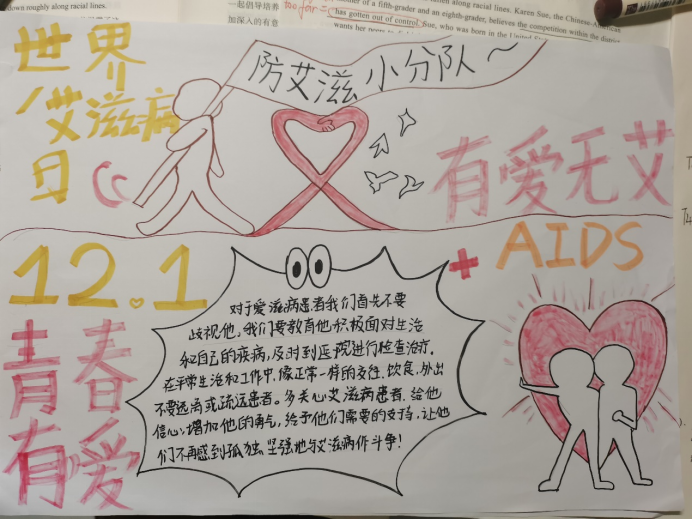 down roughly along racial lines.
一起倡导培养
加深入的有意
too far =
mother of a fifth-grader and an eighth-grader, believes the competition within the district
has gotten out of control. Sue, who was born in the United
wants her peers to
世界
艾滋病
日
防艾滋小分队~
有爱无艾
12.1
AIDS
青春
有爱
对于爱滋病患者我们首先不要
歧视他,我们要教育他积极面对生活
和自己的疾病,及时到医院进行检查治疗。
在平常生活和工作中,像正常一样的交往、饮食,外出
不要远离或疏远患者。多关心艾滋病患者,给他
信心,增加他的勇气,给予他们需要的支持,让他
们不再感到孤独,坚强地与艾滋病作斗争!